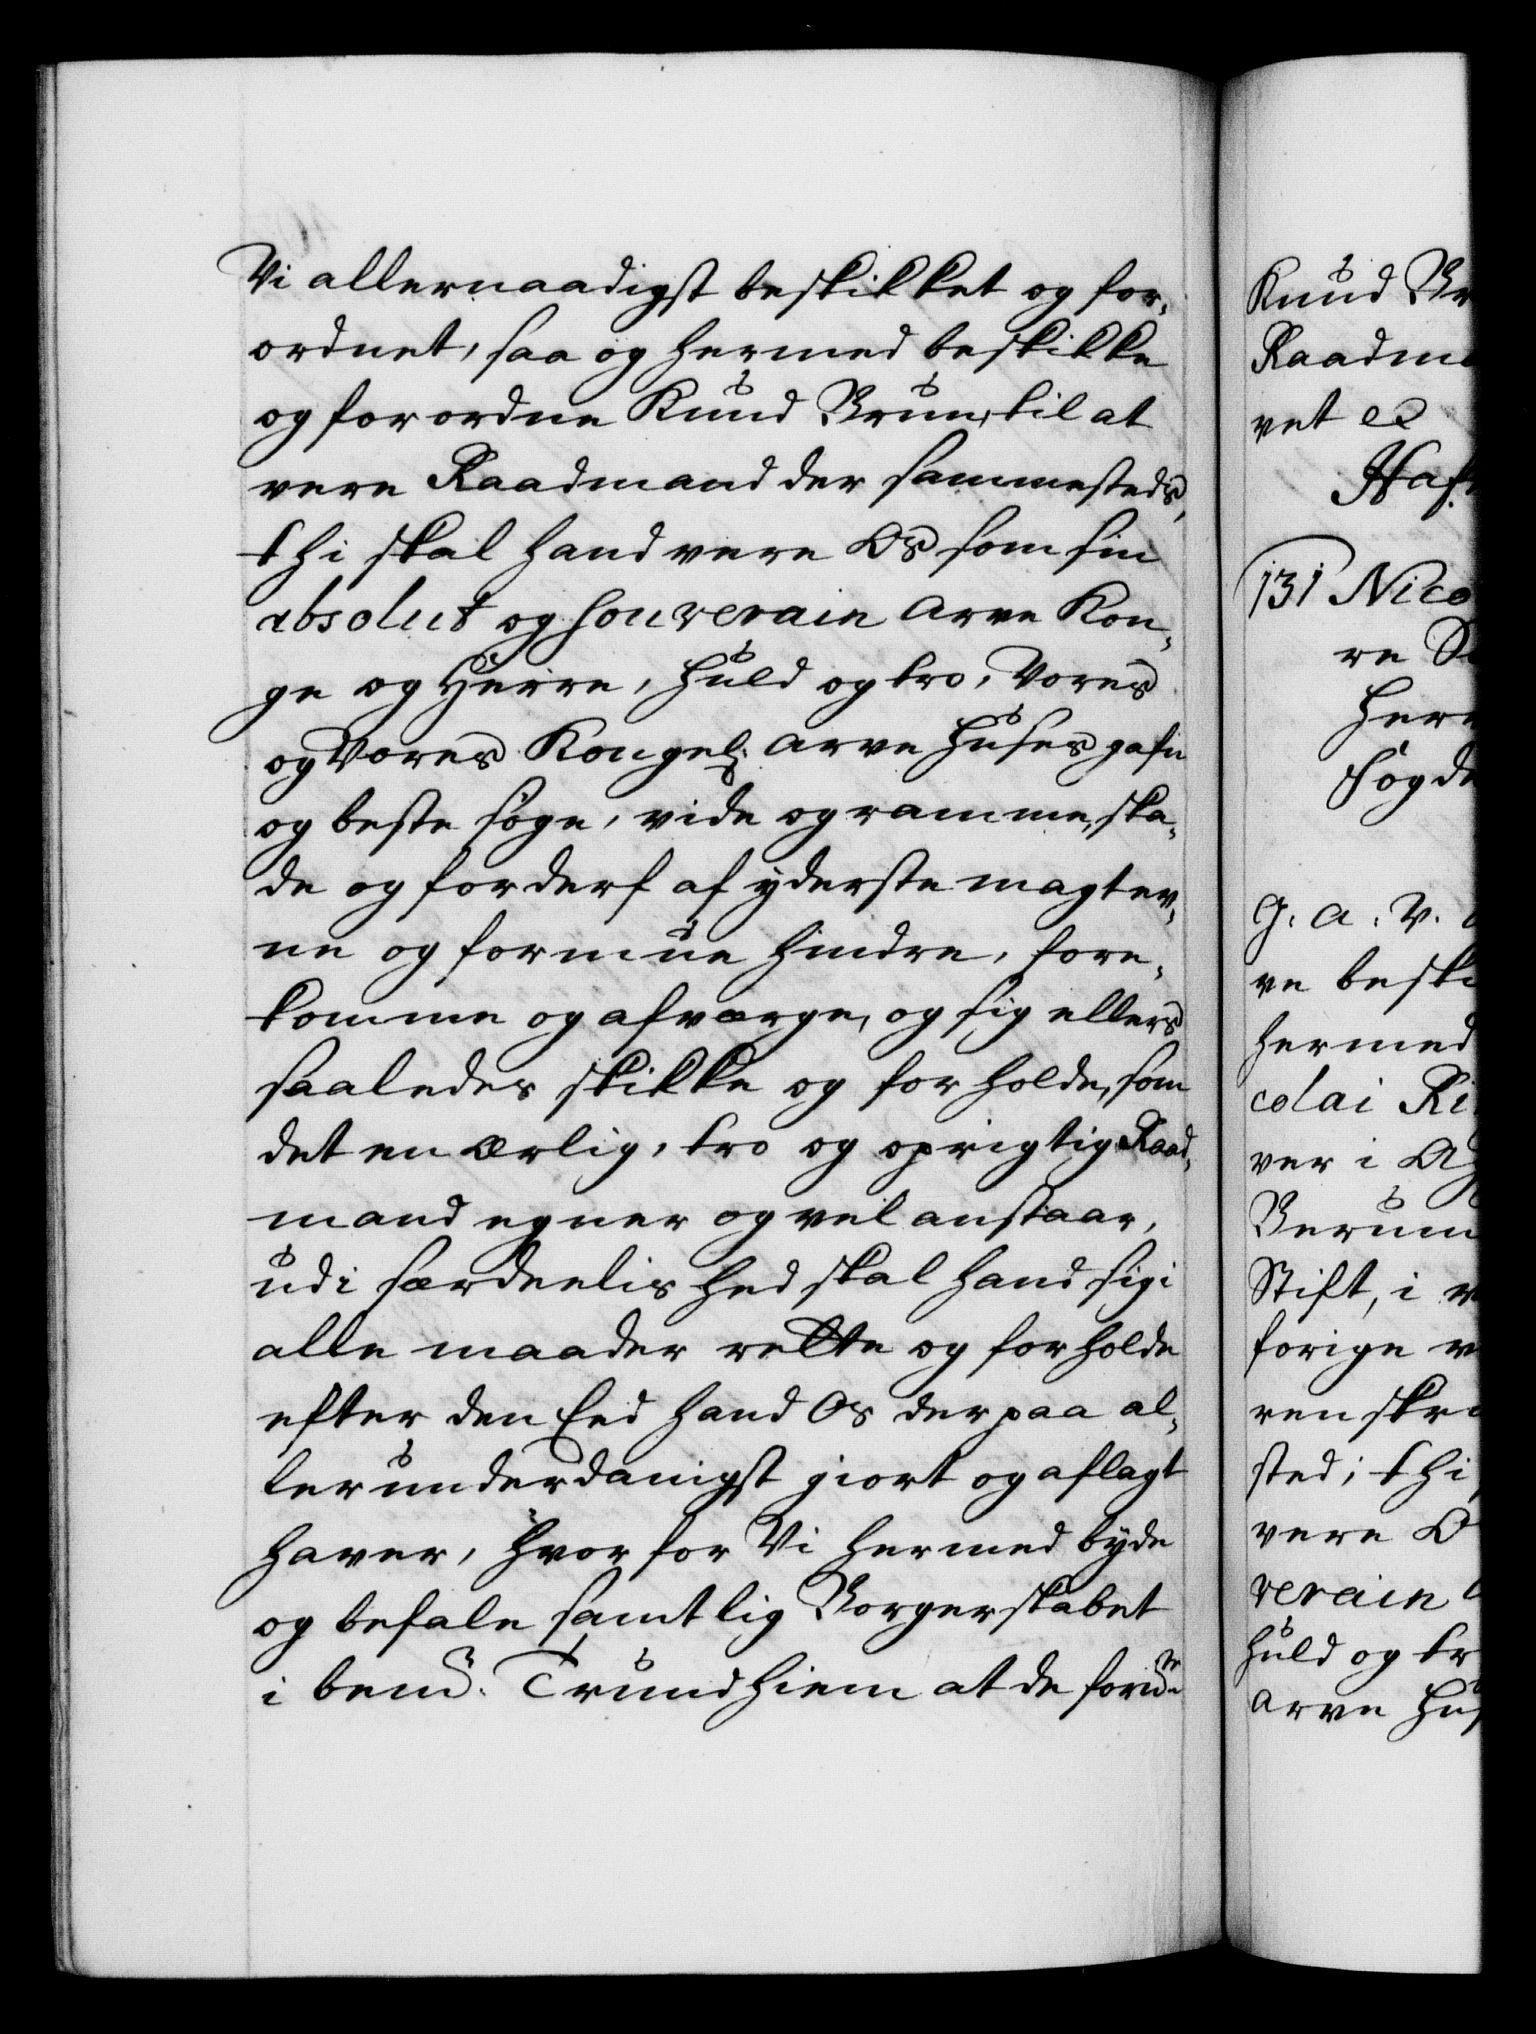 Vi allernaadigst beskikket og for-
ordnet, saa og hermed beskikke
og forordne Knud Brun, til at
vere Raadmand der sammesteds,
thi skal hand vere Os som sin
absolut og souverain Arve Kon-
ge og Herre, huld og tro, Vores
og Vores Kongel: Arve Huses gafn
og beste søge, vide og ramme, ska-
de og forderf af yderste magt ev-
ne og formue hindre, fore-
komme og afværge, og sig ellers
saaledes skikke og forholde, som
det en ærlig, tro og oprigtig Raad-
mand egner og vel anstaar,
udi særdeelished skal hand sig i
alle maader rette og forholde
efter den Eed hand Os derpaa al-
lerunderdanigst giort og aflagt
haver, hvorfor Vi hermed byde
og befale samtlig Borgerskabet
i bem.te Trundhiem at de for.ne
Knud Br
Raadma
vet &
Haf
131 Nico
re
her
Fogde
G. A. V.
ve besk
hermed
colai Ri
ver i
Berum
Stift, i
forige
ren skr
sted; thi
vere O
verain
huld og tr
Arve Hus